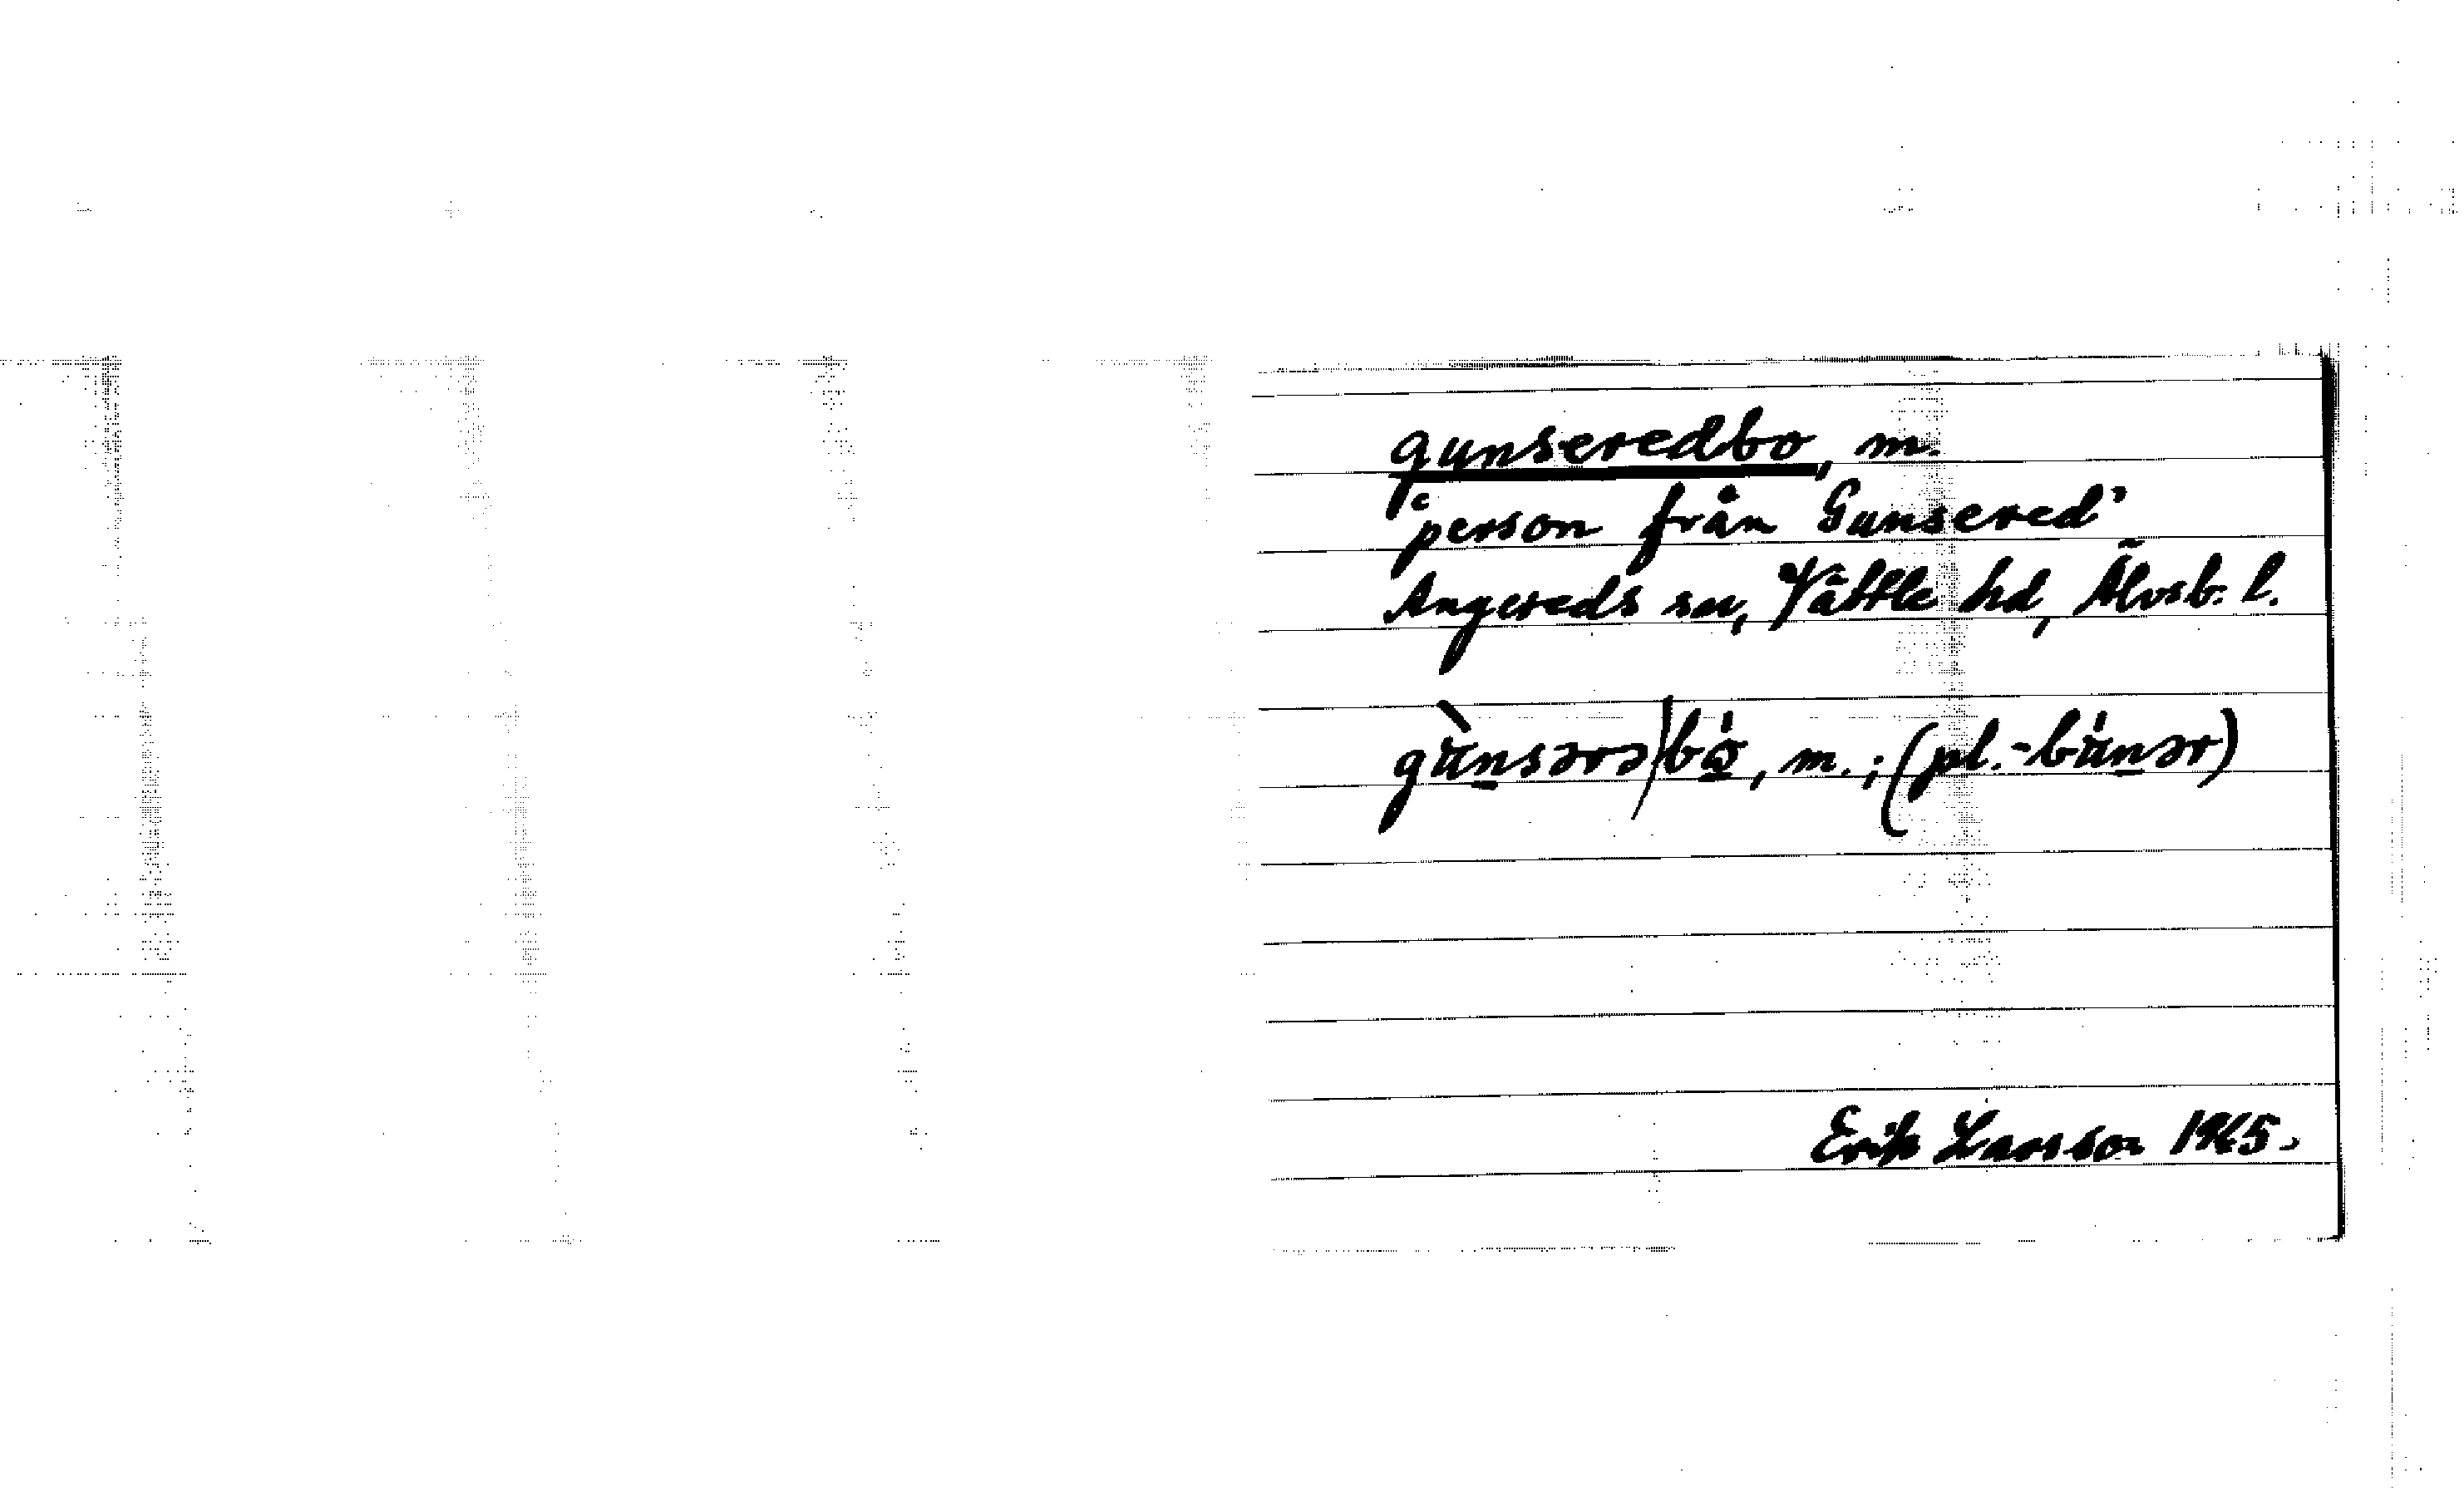 gunseredbo, m.
'person från Gunsered'
Angereds sn, Vättle hd, Älvsb. l.
gùnsərə|bo̱, m.; (pl. -bùnər)
Erik Larsson 1965.